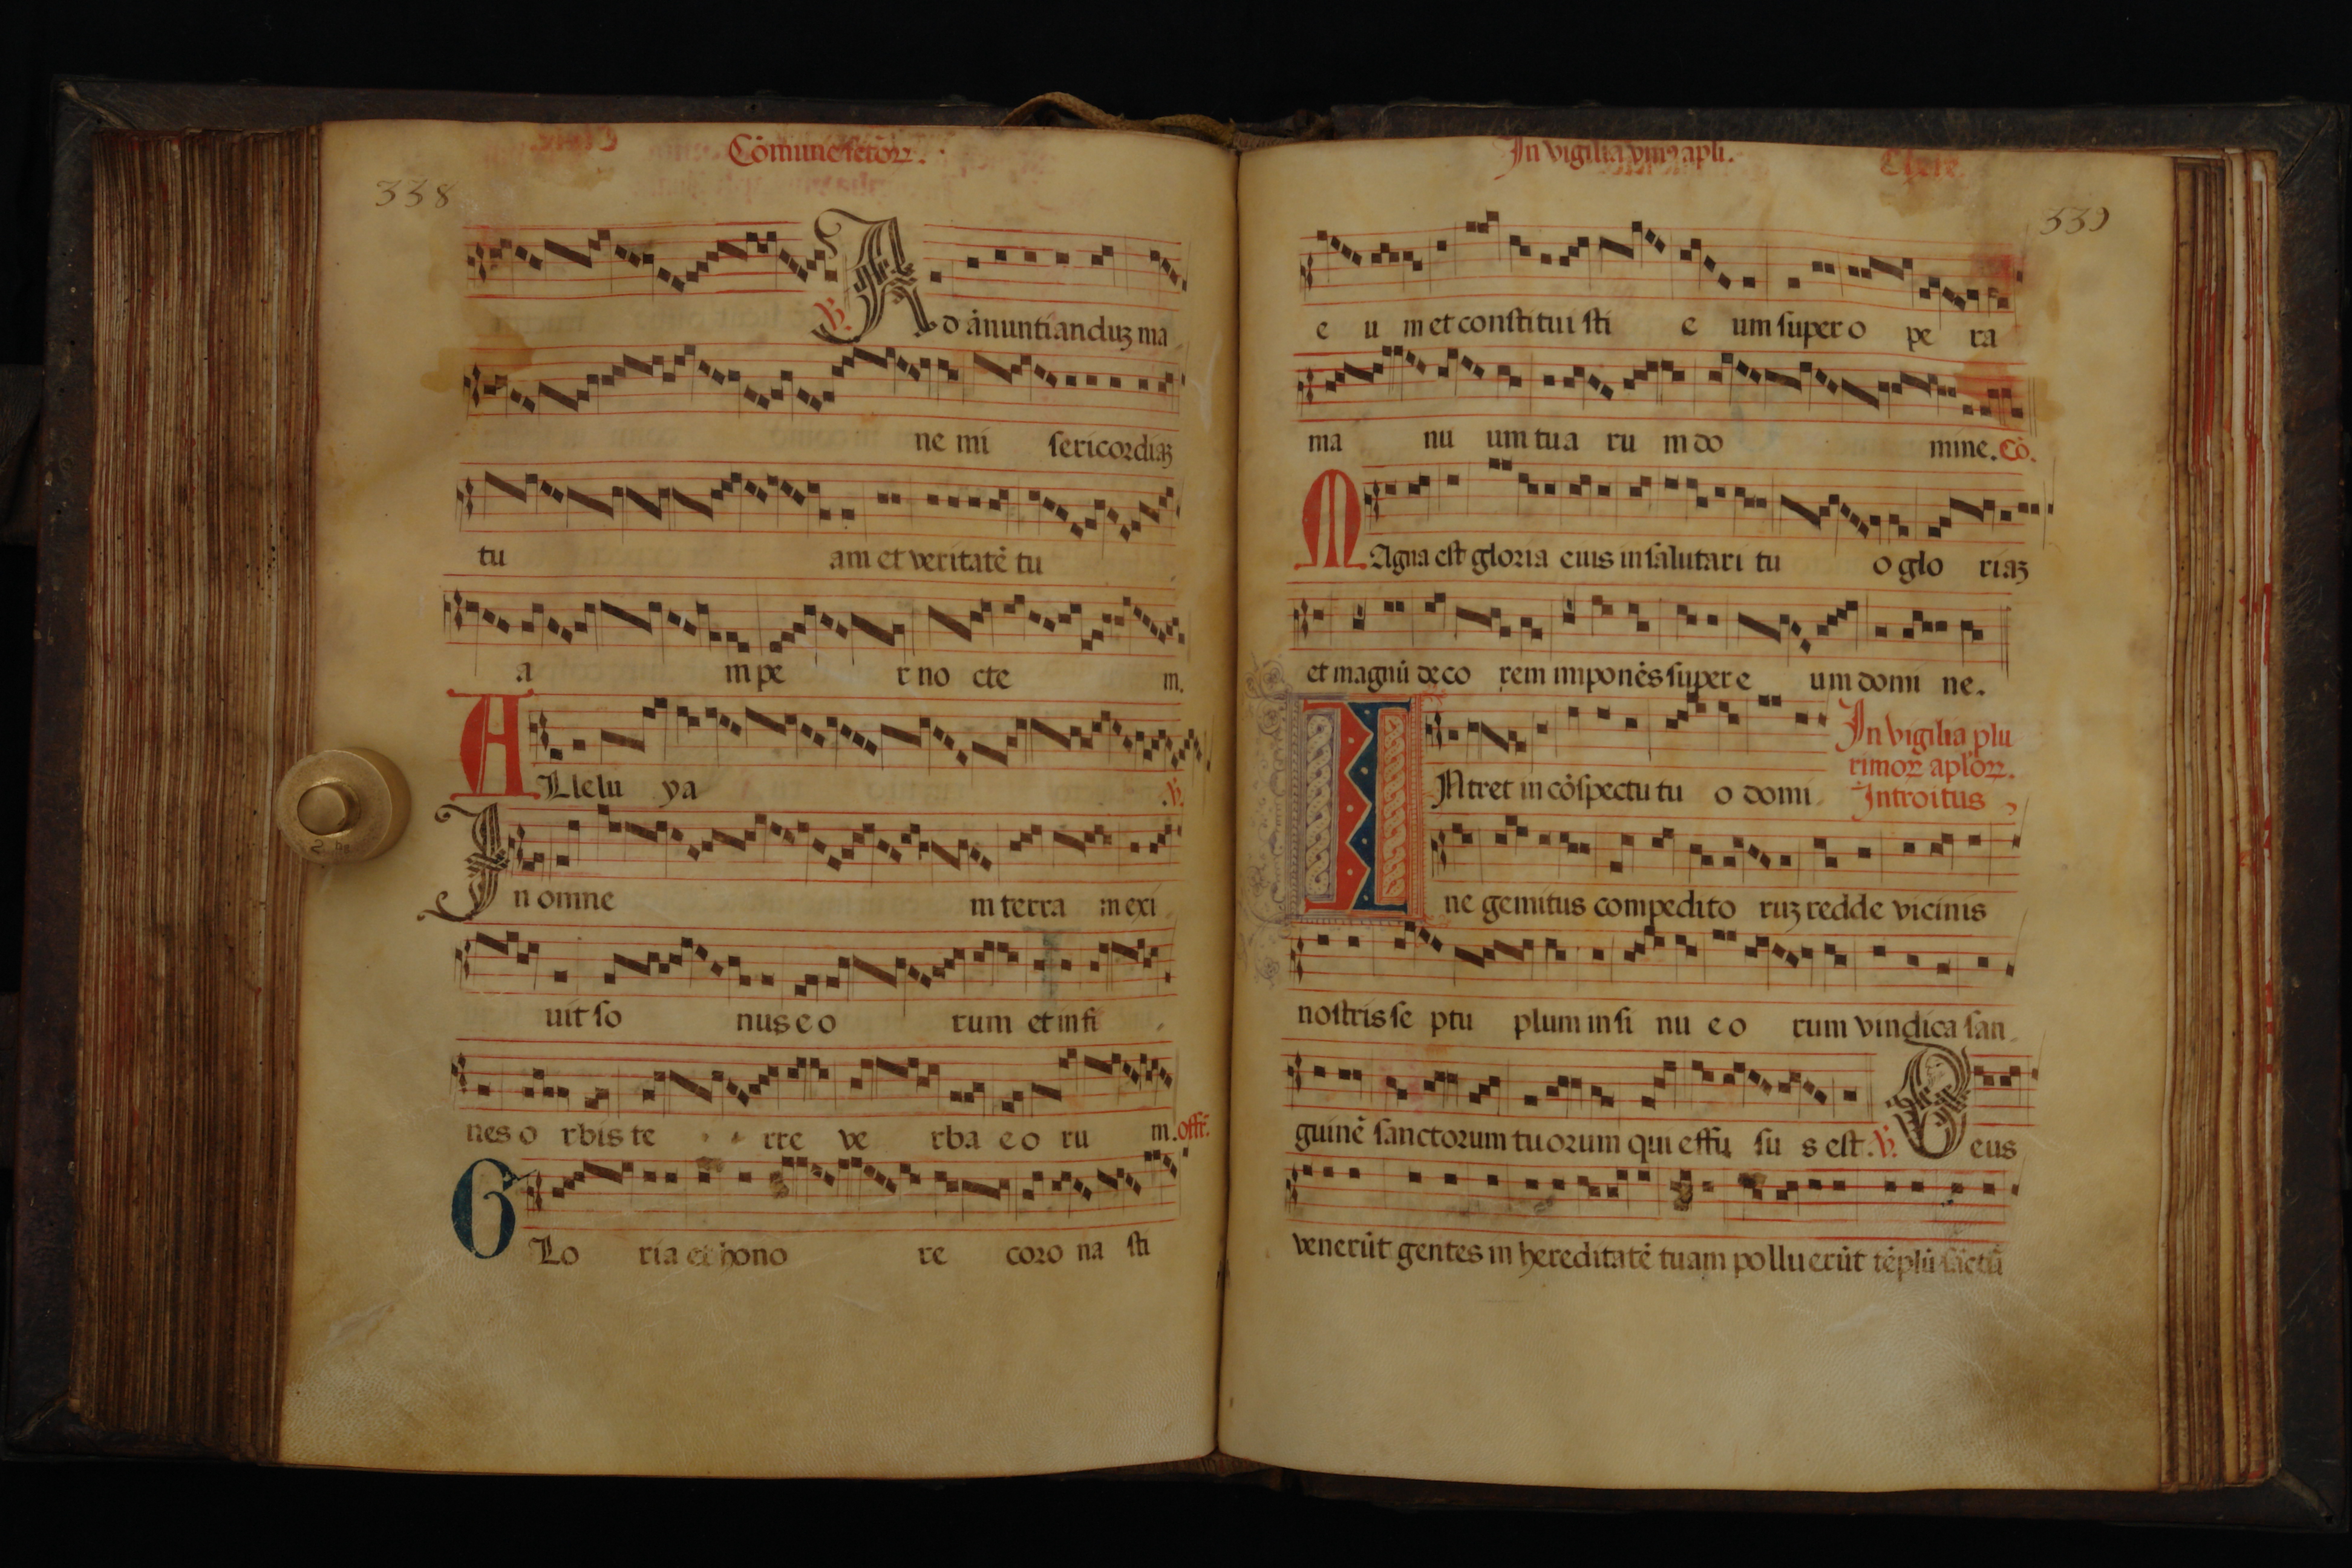 Cōmune sctōꝝ.
338
℣. Ad ānuntianduꝫ ma
ne mi sericordiaꝫ
tu am et veritatē tu
a m pe r no cte m.
ALlelu ya .℣.
In omne m terra m exi
uit so nus e o rum et in fi
nes o rbis te rre ve rba e o ru m. offr̄.
GLo ria et hono re coro na sti
In vigilia
apli.
339
e u m et constitui sti e um super o pe ra
ma nu um tua ru m do mine. Cō.
MAgna est gloria eius in salutari tu o glo riaꝫ
et magnū deco rem imponēs super e um domi ne.
In vigilia plu
rimoꝝ aplōꝝ.
Introitus
INtret in cōspectu tu o domi
ne gemitus compedito ruꝫ redde vicinis
nostris se ptu plum in si nu e o rum vindica san
guinē sanctorum tuorum qui effu su s est. ℣. Deus
venerūt gentes in hereditatē tuam polluerūt tēplū sāctū